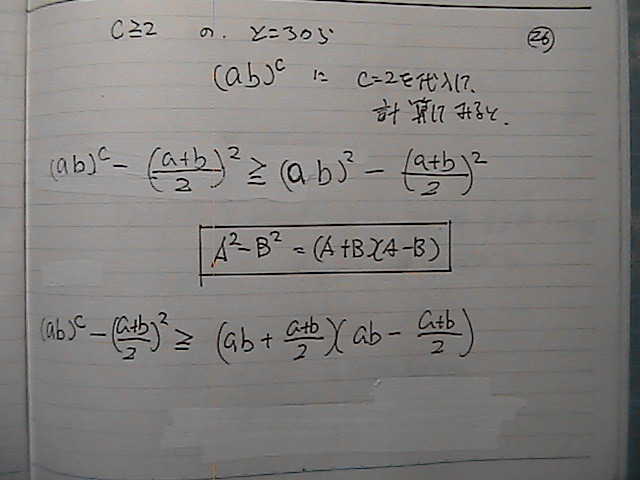 C≧2 の. ところから
㉖
(ab)^c に C=2を代入して、
計算してみると、
(ab)^c - ((a+b)/2)^2 ≧ (ab)^2 - ((a+b)/2)^2
A^2-B^2 = (A+B)(A-B)
(ab)^c - ((a+b)/2)^2 ≧ (ab + (a+b)/2)(ab - (a+b)/2)